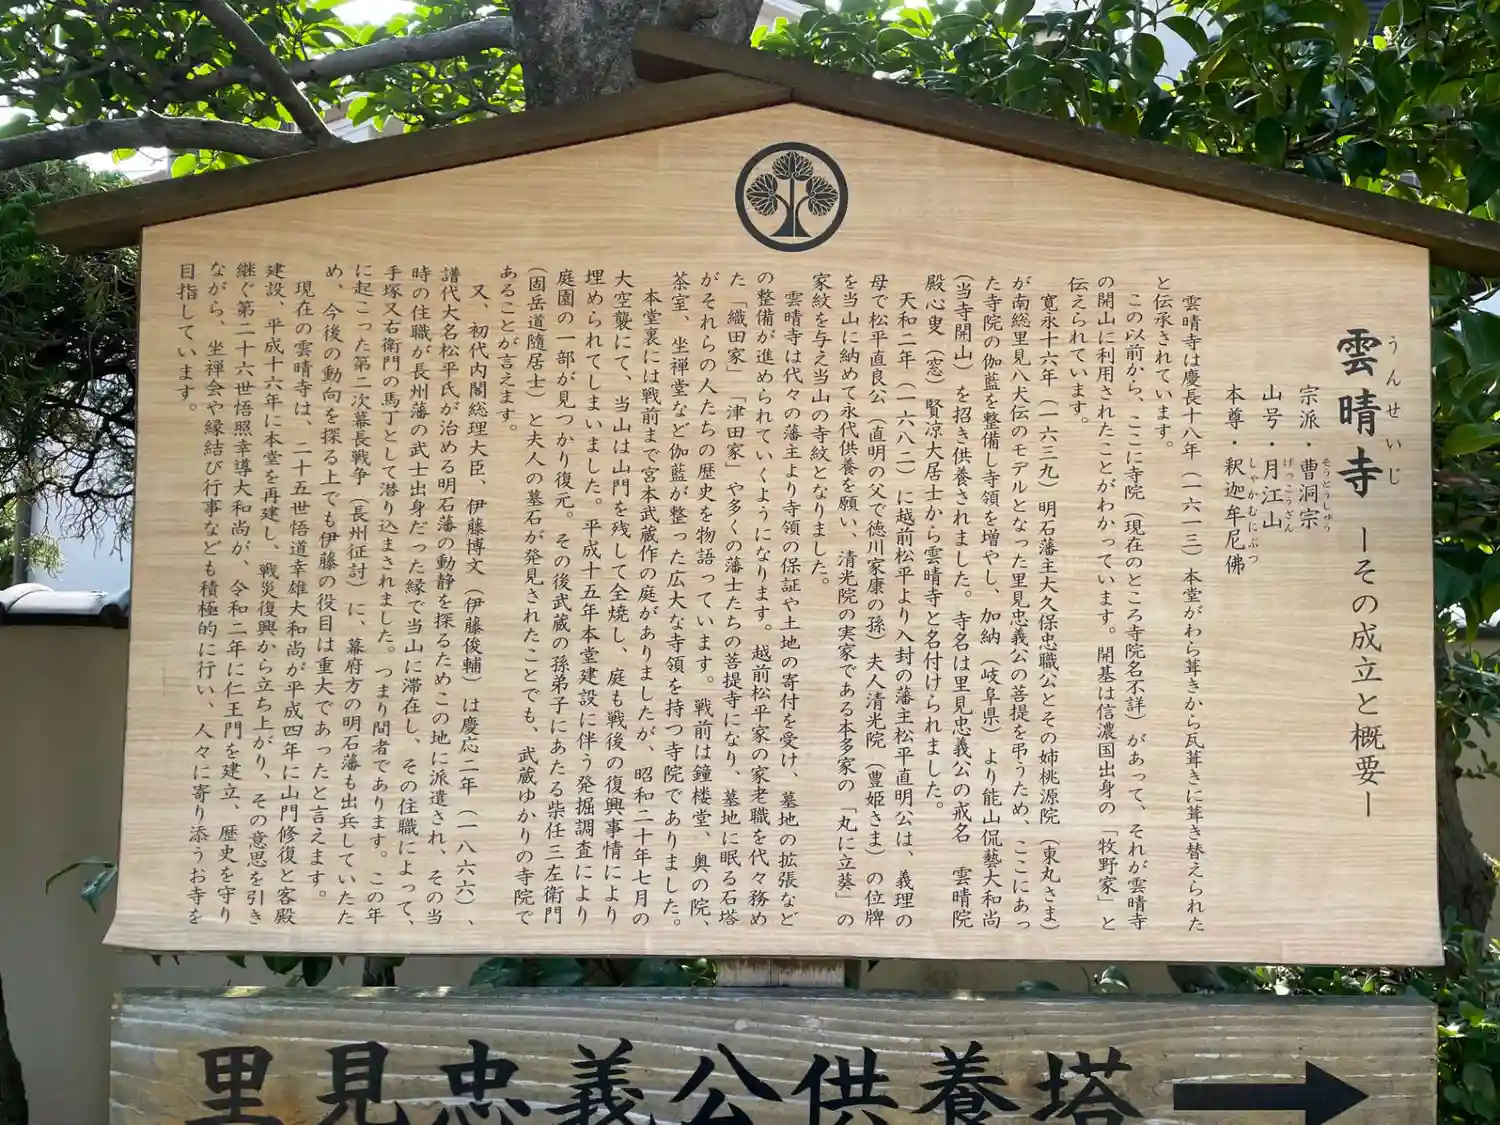 うんせいじ
雲晴寺 ーその成立と概要ー
そうとうしゅう
宗派・曹洞宗
げっこうざん
山号・月江山
しゃかむにぶつ
本尊・釈迦牟尼佛
雲晴寺は慶長十八年（一六一三）本堂がわら葺きから瓦葺きに葺き替えられた
と伝承されています。
この以前から、ここに寺院（現在のところ寺院名不詳）があって、それが雲晴寺
の開山に利用されたことがわかっています。開基は信濃国出身の「牧野家」と
伝えられています。
寛永十六年（一六三九）明石藩主大久保忠職公とその姉桃源院（東丸さま）
が南総里見八犬伝のモデルとなった里見忠義公の菩提を弔うため、ここにあっ
た寺院の伽藍を整備し寺領を増やし、加納（岐阜県）より能山侃藝大和尚
（当寺開山）を招き供養されました。寺名は里見忠義公の戒名 雲晴院
殿心叟（窓）賢凉大居士から雲晴寺と名付けられました。
天和二年（一六八二）に越前松平より入封の藩主松平直明公は、義理の
母で松平直良公（直明の父で徳川家康の孫）夫人清光院（豊姫さま）の位牌
を当山に納めて永代供養を願い、清光院の実家である本多家の「丸に立葵」の
家紋を与え当山の寺紋となりました。
雲晴寺は代々の藩主より寺領の保証や土地の寄付を受け、墓地の拡張など
の整備が進められていくようになります。越前松平家の家老職を代々務め
た「織田家」「津田家」や多くの藩士たちの菩提寺になり、墓地に眠る石塔
がそれらの人たちの歴史を物語っています。戦前は鐘楼堂、奥の院、
茶室、坐禅堂など伽藍が整った広大な寺領を持つ寺院でありました。
本堂裏には戦前まで宮本武蔵作の庭がありましたが、昭和二十年七月の
大空襲にて、当山は山門を残して全焼し、庭も戦後の復興事情により
埋められてしまいました。平成十五年本堂建設に伴う発掘調査により
庭園の一部が見つかり復元。その後武蔵の孫弟子にあたる柴任三左衛門
（固岳道随居士）と夫人の墓石が発見されたことでも、武蔵ゆかりの寺院で
あることが言えます。
又、初代内閣総理大臣、伊藤博文（伊藤俊輔）は慶応二年（一八六六）、
譜代大名松平氏が治める明石藩の動静を探るためこの地に派遣され、その当
時の住職が長州藩の武士出身だった縁で当山に滞在し、その住職によって、
手塚又右衛門の馬丁として潜り込まされました。つまり間者であります。この年
に起こった第二次幕長戦争（長州征討）に、幕府方の明石藩も出兵していたた
め、今後の動向を探る上でも伊藤の役目は重大であったと言えます。
現在の雲晴寺は、二十五世悟道幸雄大和尚が平成四年に山門修復と客殿
建設、平成十六年に本堂を再建し、戦災復興から立ち上がり、その意思を引き
継ぐ第二十六世悟照幸導大和尚が、令和二年に仁王門を建立、歴史を守り
ながら、坐禅会や縁結び行事なども積極的に行い、人々に寄り添うお寺を
目指しています。
里見忠義公供養塔